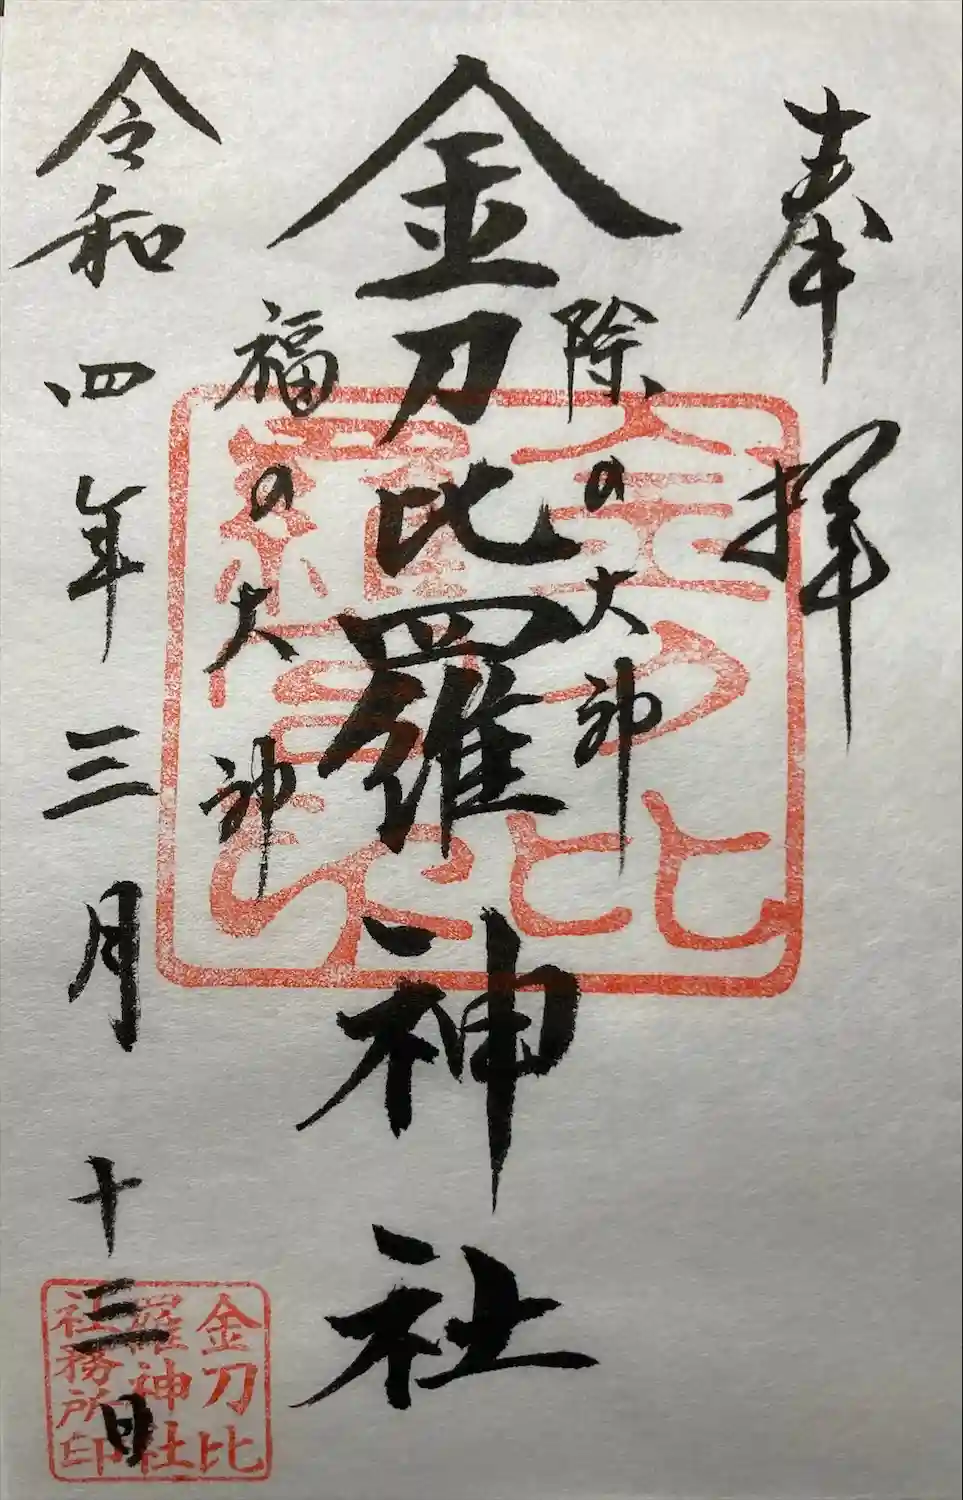 奉拝
除の大神
金刀比羅神社
福の大神
令和四年三月十三日
金刀比
羅神社
社務所印